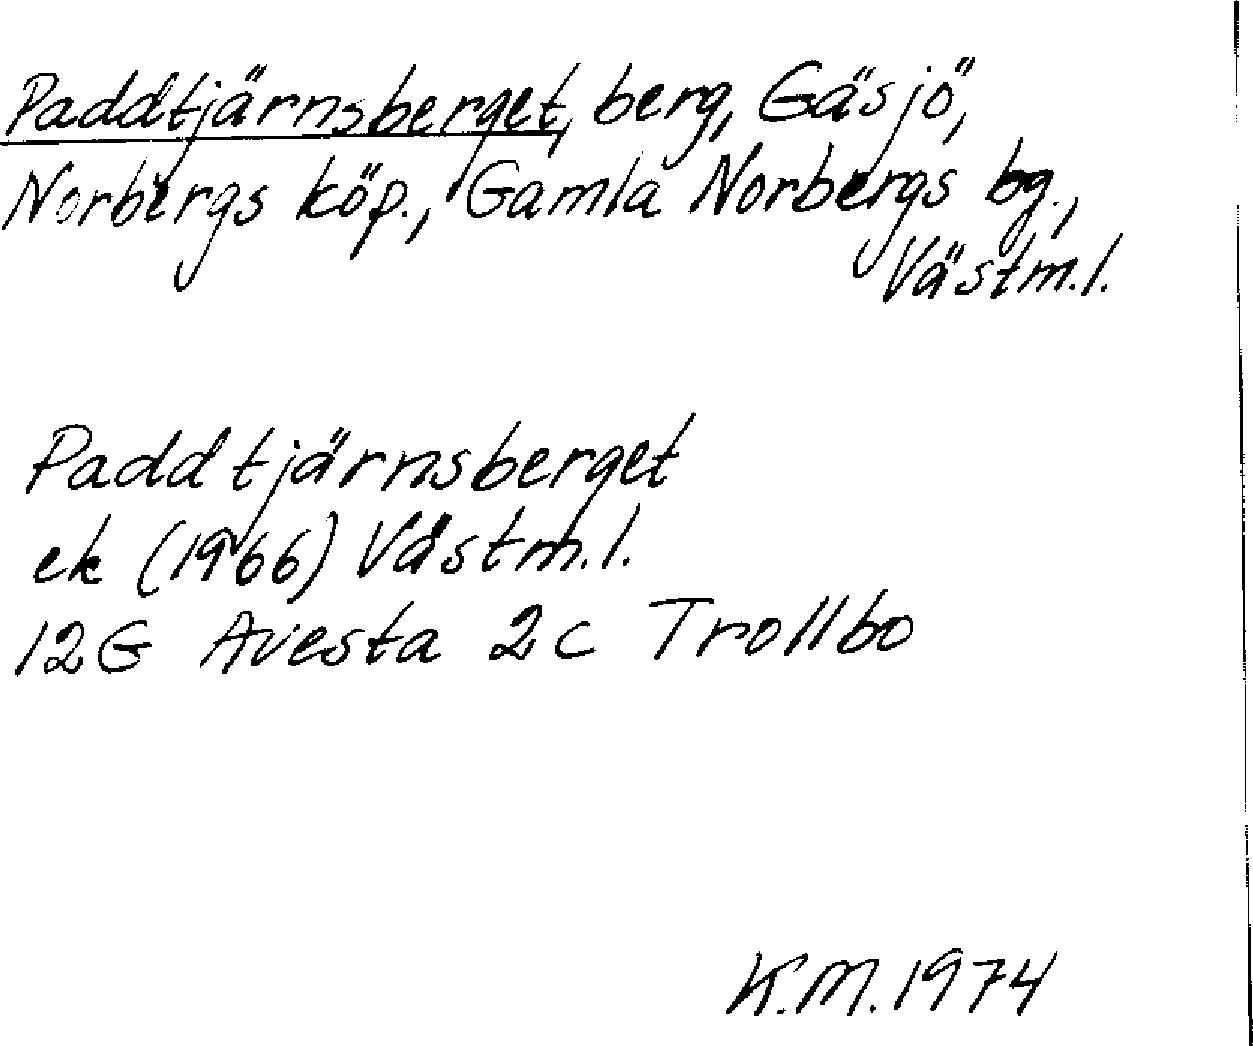 Paddtjärnsberget, berg, Gäsjö,
Norbergs köp., Gamla Norbergs bg.,
Västm.l.
Paddtjärnsberget
ek (1966) Västm.l.
12G Avesta 2c Trollbo
K.M. 1974